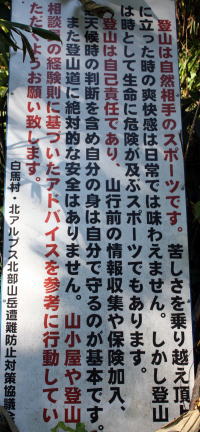 登山は自然相手のスポーツです。苦しさを乗り越え頂上
に立った時の爽快感は日常では味わえません。しかし登山
は時として生命に危険が及ぶスポーツでもあります。
登山は自己責任であり、山行前の情報収集や保険加入、
天候時の判断を含め自分の身は自分で守るのが基本です。
また登山道に絶対的な安全はありません。山小屋や登山
相談〻の経験則に基づいたアドバイスを参考に行動してい
ただくようお願い致します。
白馬村・北アルプス北部山岳遭難防止対策協議